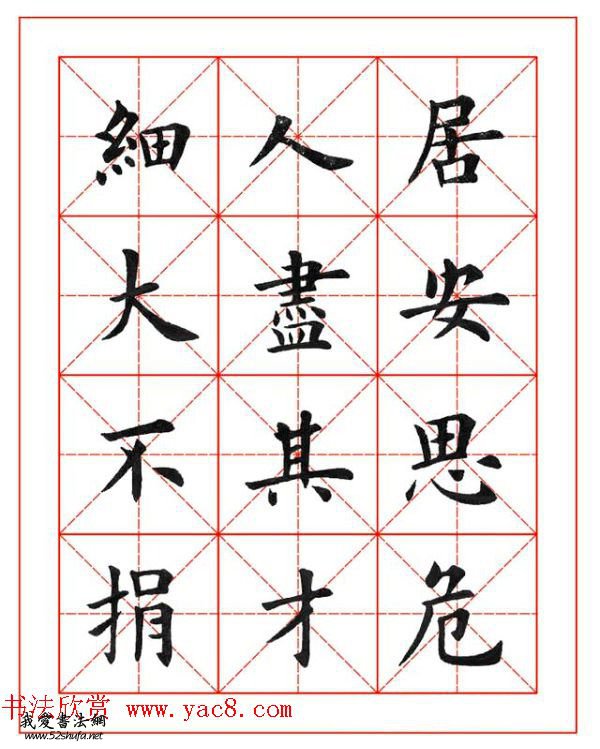 居安思危
人盡其才
細大不捐
书法欣赏 www.yac8.com
我爱书法網
www.52shufa.net